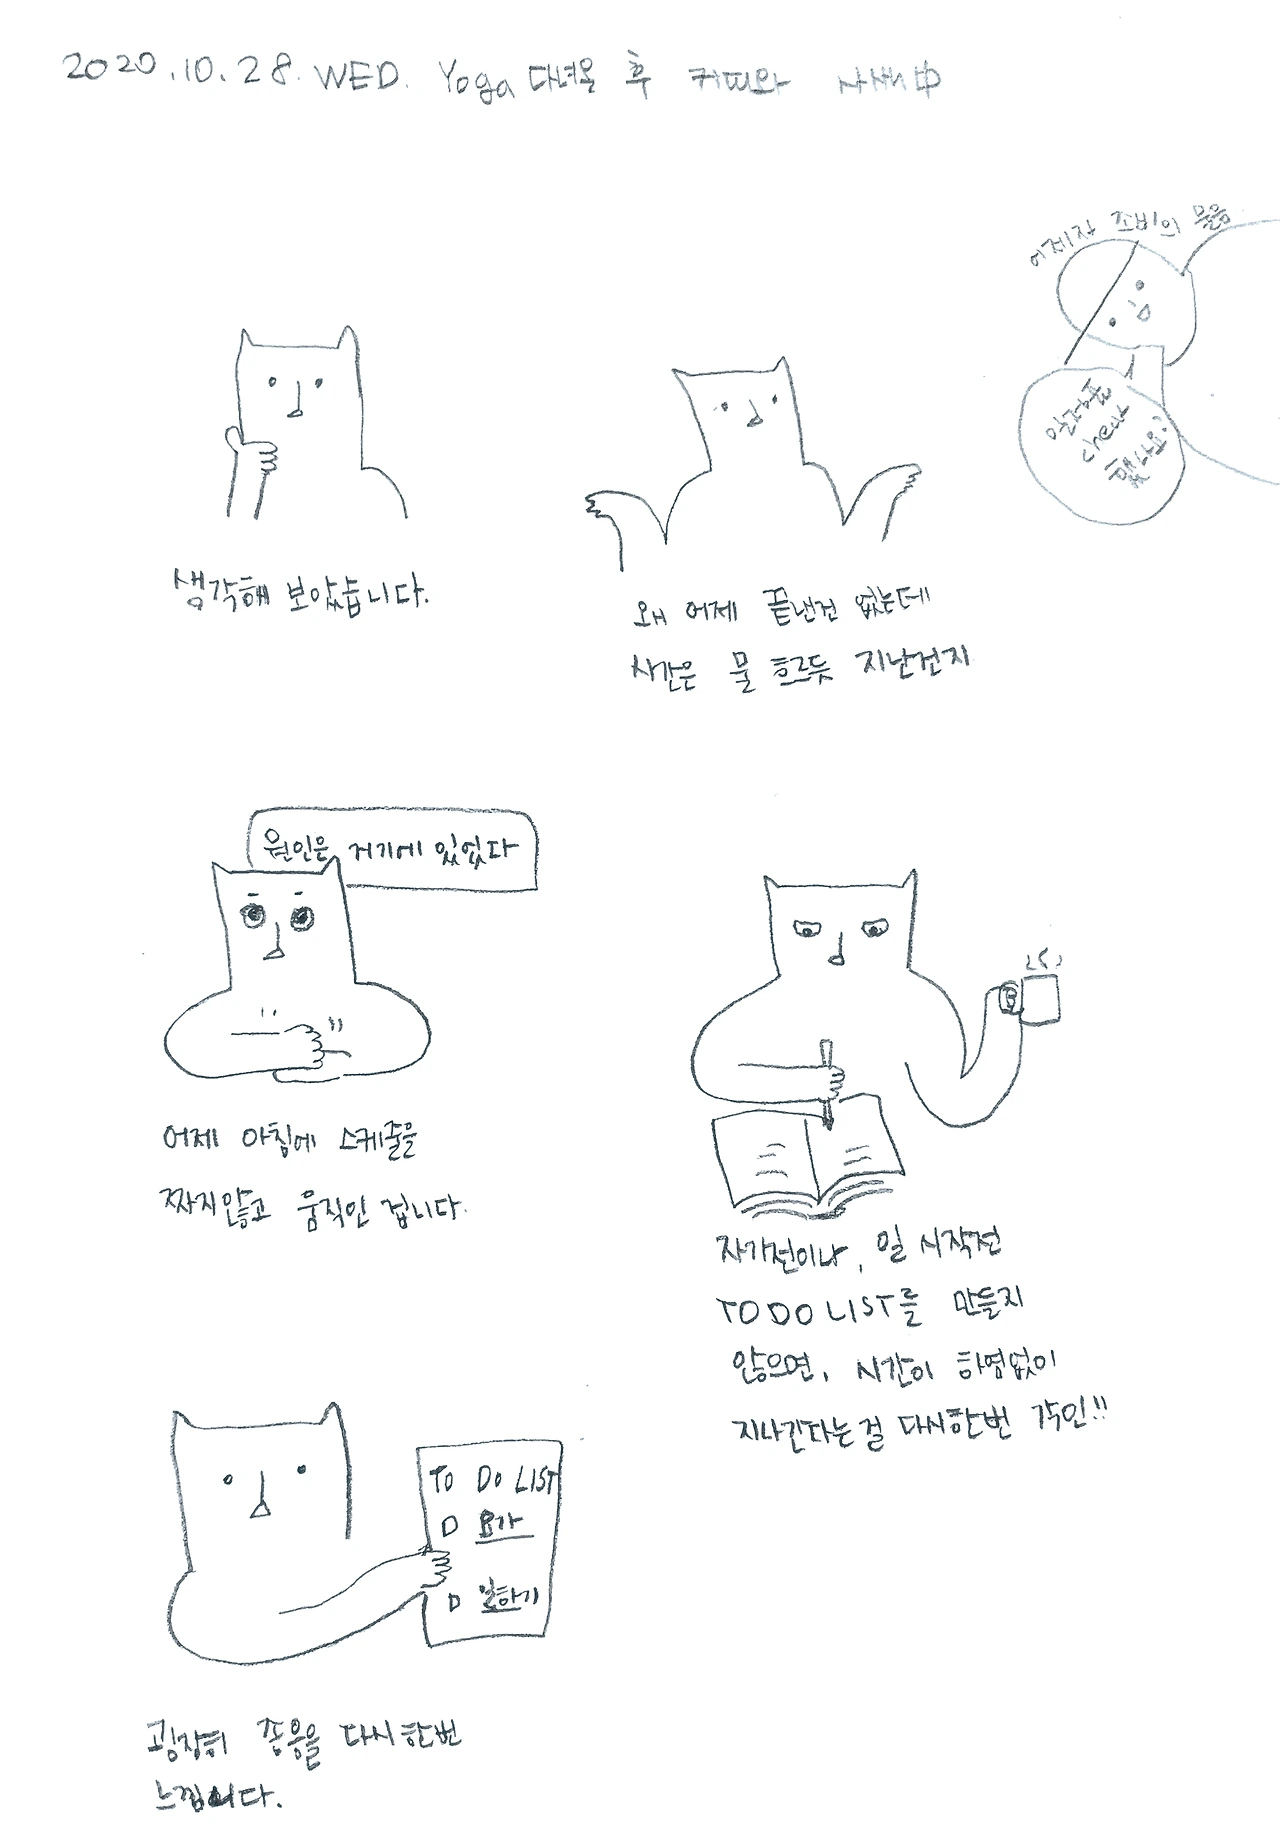 2020.10.28. WED. Yoga 다녀온 후 커피와 사색中
어제자 조비의 물음
cheat
했나요?
생각해 보았습니다.
왜 어제 끝낸건 없는데
시간은 물 흐르듯 지난건지
원인은 거기에 있었다
어제 아침에 스케줄을
짜지않고 움직인 겁니다.
자기전이나, 일 시작전
TO DO LIST를 만들지
않으면, 시간이 하염없이
지나간다는 걸 다시한번 각인!!
TO DO LIST
요가
일하기
굉장히 중용을 다시한번
느낍니다.